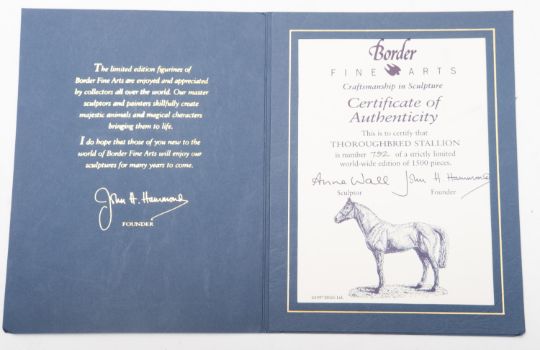 The limited edition figurines of
Border Fine Arts are enjoyed and appreciated
by collectors all over the world. Our master
sculptors and painters skillfully create
majestic animals and magical characters
bringing them to life.
I do hope that those of you new to the
world of Border Fine Arts will enjoy our
sculptures for many years to come.
John H. Hammond
FOUNDER
Border
FINE ARTS
Craftsmanship in Sculpture
Certificate of
Authenticity
This is to certify that
THOROUGHBRED STALLION
is number 792 of a strictly limited
world-wide edition of 1500 pieces.
Anne Wall John H Hammond
Sculptor Founder